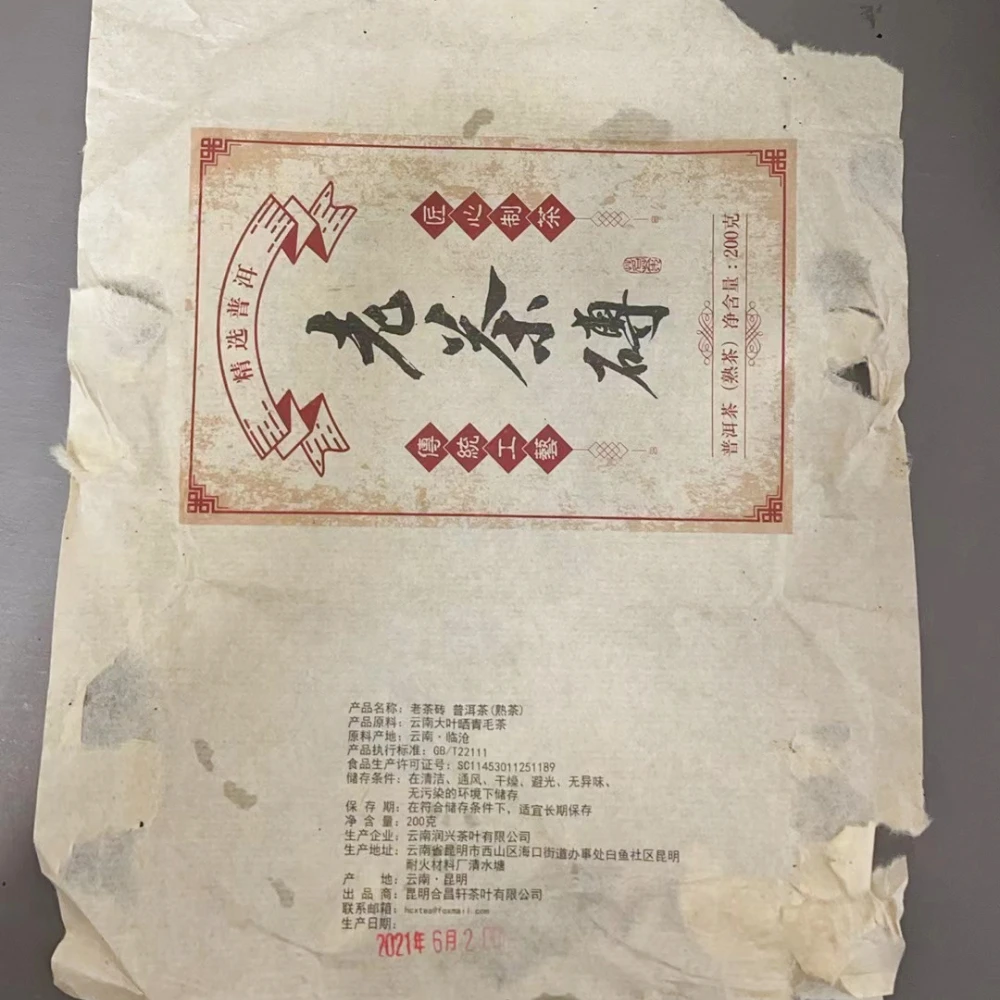 精选普洱
匠心制茶
老茶磚
傳統工藝
普洱茶（熟茶）净含量：200克
产品名称：老茶砖 普洱茶(熟茶)
产品原料：云南大叶晒青毛茶
原料产地：云南·临沧
产品执行标准：GB/T22111
食品生产许可证号：SC11453011251189
储存条件：在清洁、通风、干燥、避光、无异味、
无污染的环境下储存
保 存 期：在符合储存条件下，适宜长期保存
净 含 量：200克
生产企业：云南润兴茶叶有限公司
生产地址：云南省昆明市西山区海口街道办事处白鱼社区昆明
耐火材料厂清水塘
产 地：云南·昆明
出 品 商：昆明合昌轩茶叶有限公司
联系邮箱：hcxtea@foxmail.com
生产日期：
2021年 6月 2